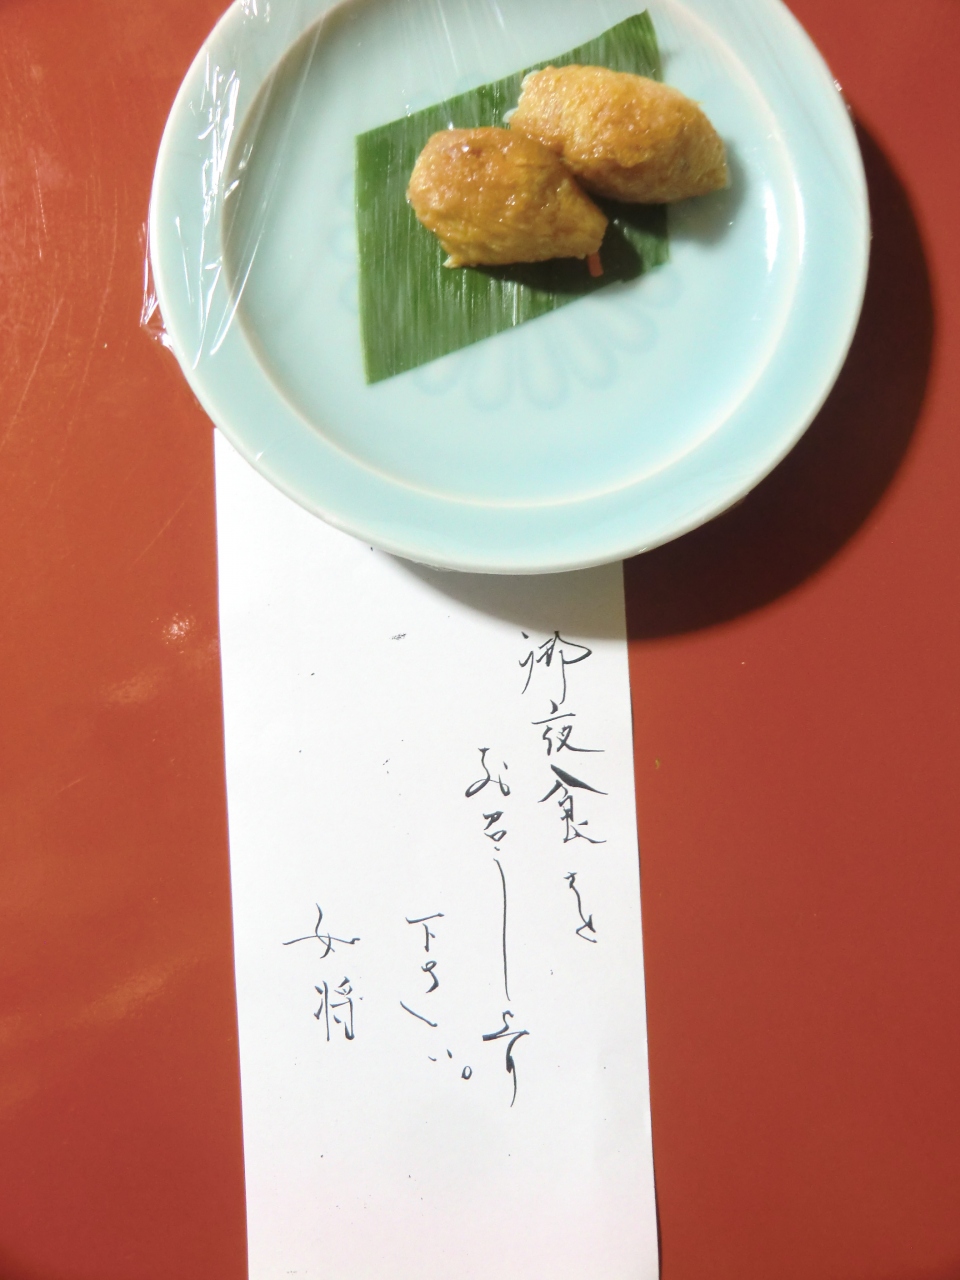 御夜食を
お召し上り
下さい。
女将